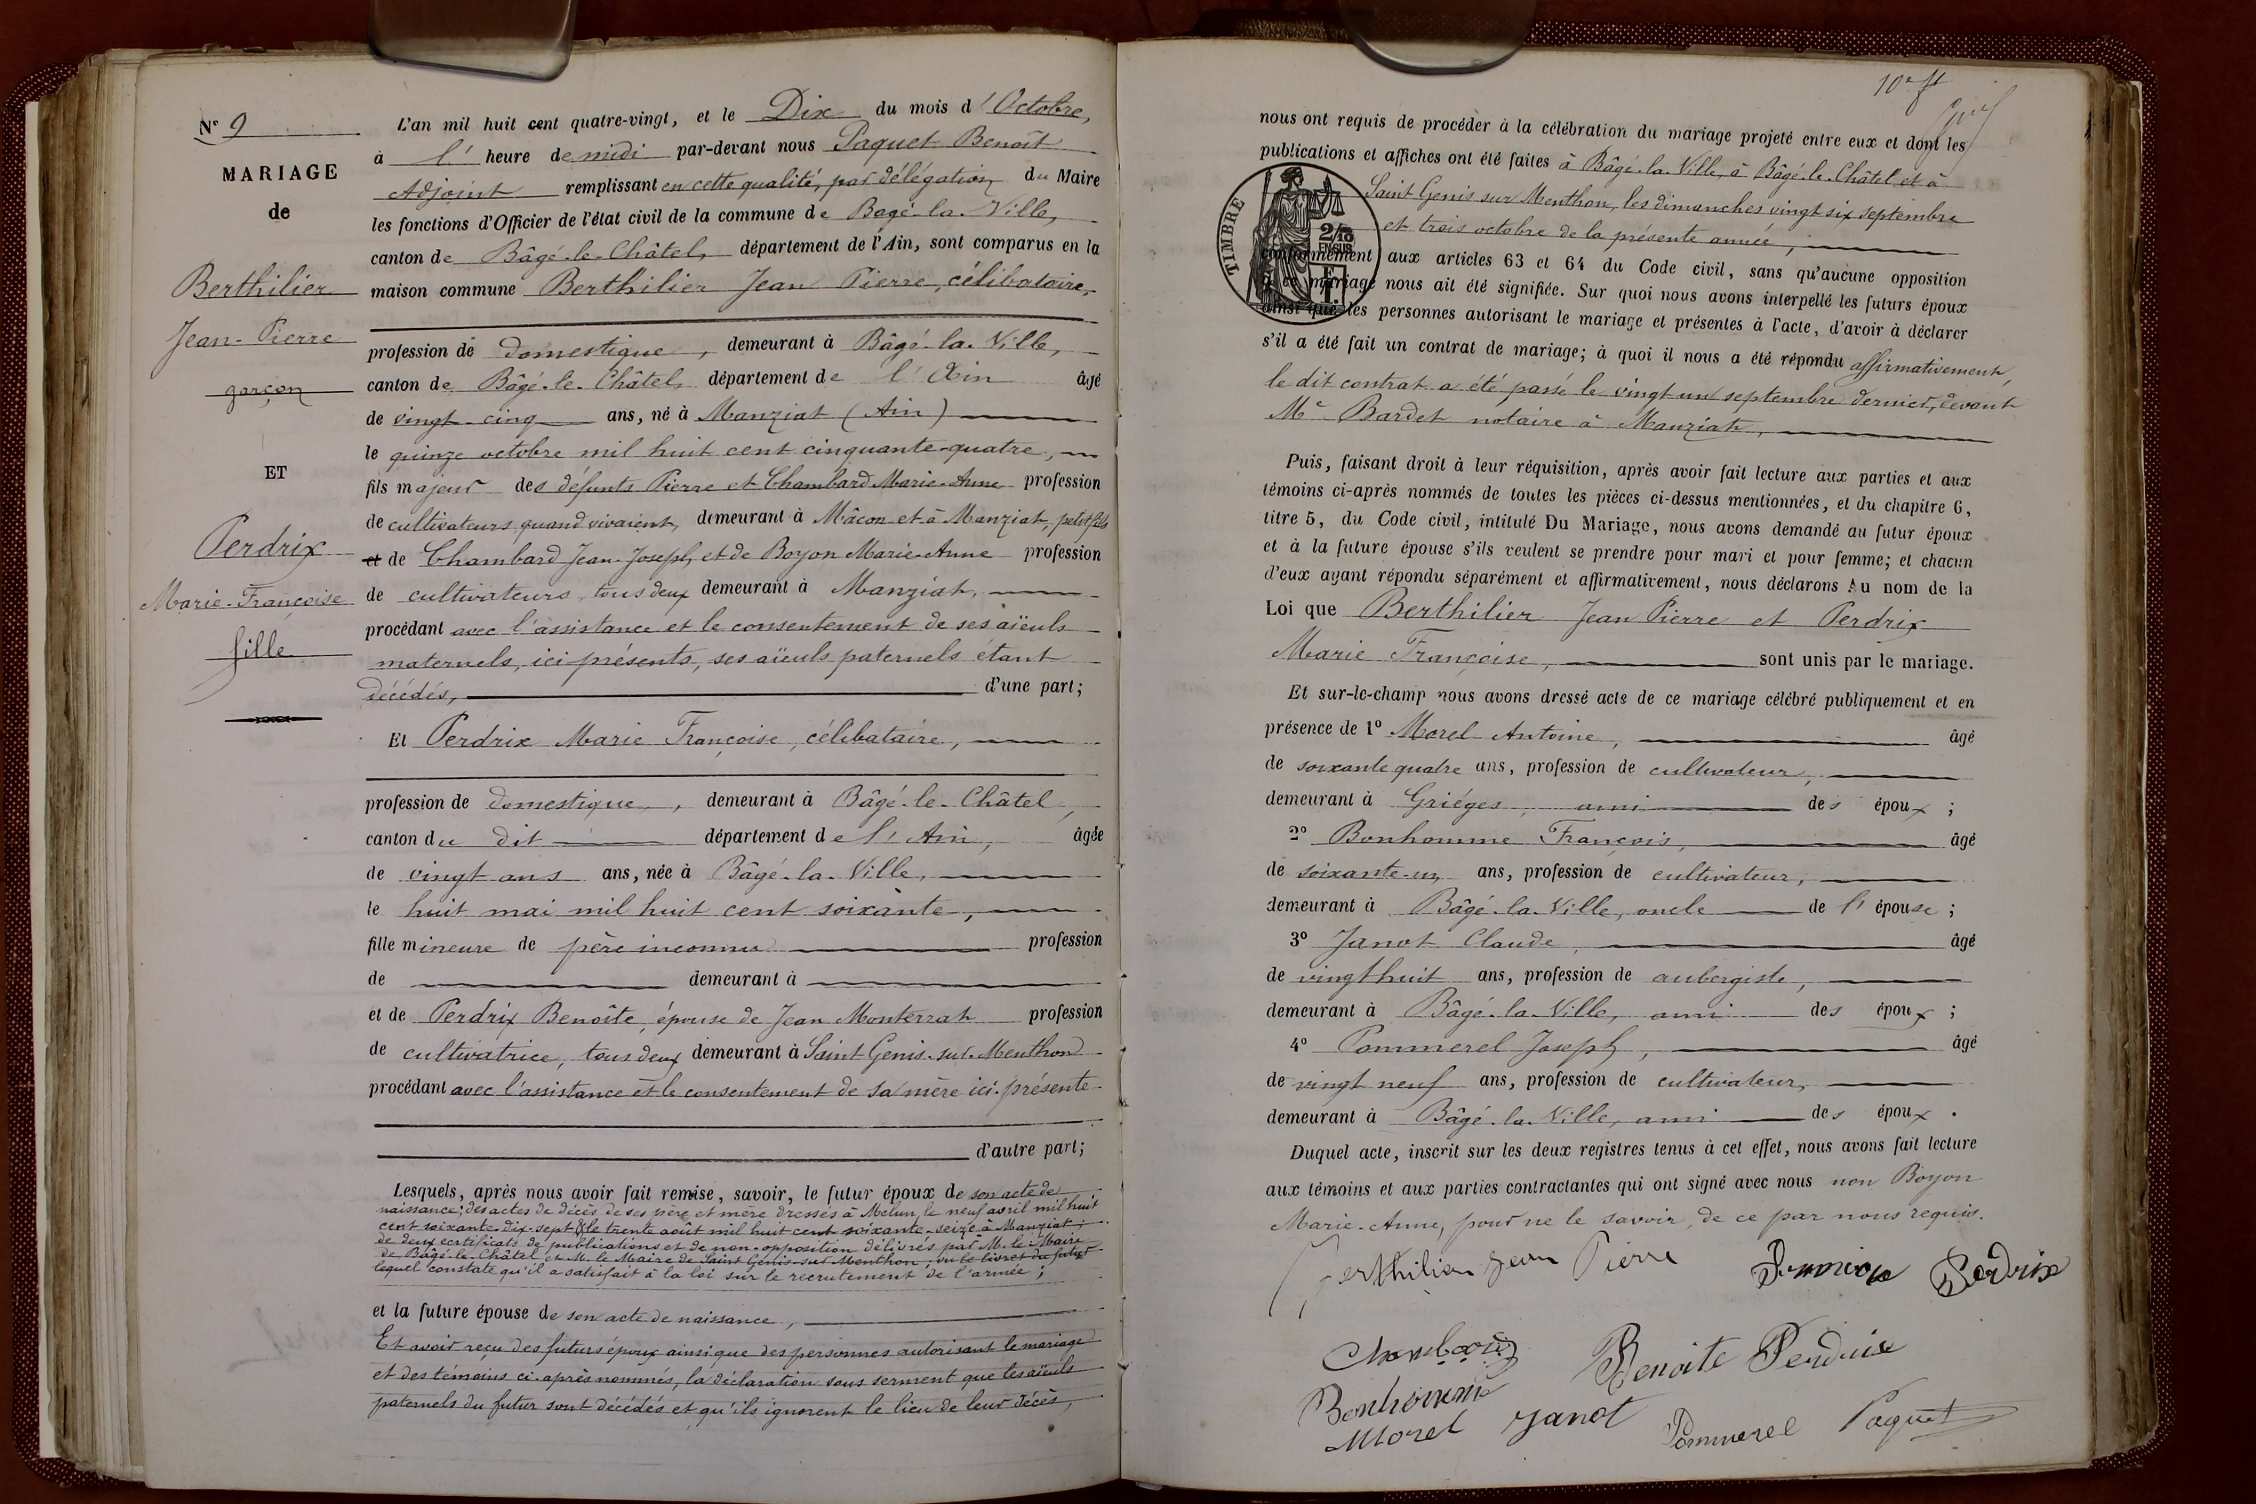 Nº 9
MARIAGE
de
Berthilier
Jean-Pierre
garçon
ET
Perdrix
Marie-Françoise
fille
L'an mil huit cent quatre-vingt, et le Dix du mois d'Octobre,
à l' heure de midi par-devant nous Paquet Benoît
Adjoint remplissant en cette qualité, par délégation du Maire
les fonctions d'Officier de l'état civil de la commune de Bagé-la-Ville,
canton de Bâgé-le-Châtel, département de l'Ain, sont comparus en la
maison commune Berthilier Jean Pierre, célibataire,
profession de domestique, demeurant à Bâgé-la-Ville,
canton de Bâgé-le-Châtel département de l'Ain âgé
de vingt-cinq ans, né à Manziat (Ain)
le quinze octobre mil huit cent cinquante-quatre,
fils majeur des défunts Pierre et Chambard Marie-Anne profession
de cultivateurs quand vivaient, demeurant à Mâcon et à Manziat, petit fils
et de Chambard Jean-Joseph, et de Boyon Marie-Anne profession
de cultivateurs, tous deux demeurant à Manziat,
procédant avec l'assistance et le consentement de ses aïeuls
maternels, ici présents, ses aïeuls paternels étant
décédés, d'une part;
Et Perdrix Marie Françoise, célibataire,
profession de domestique, demeurant à Bâgé-le-Châtel,
canton du dit département de l'Ain, âgée
de vingt ans ans, née à Bâgé-la-Ville,
le huit mai mil huit cent soixante,
fille mineure de père inconnu profession
de demeurant à
et de Perdrix Benoîte, épouse de Jean Monterrat profession
de cultivatrice, tous deux demeurant à Saint Genis-sur-Menthon
procédant avec l'assistance et le consentement de sa mère ici présente
d'autre part;
Lesquels, après nous avoir fait remise, savoir, le futur époux de son acte de
naissance; des actes de décès de ses père et mère dressés à Melun, le neuf avril mil huit
cent soixante-dix-sept & le trente août mil huit cent soixante-seize à Manziat;
de deux certificats de publications et de non-opposition délivrés par M. le Maire
de Bâgé-le-Châtel et M. le Maire de Saint Genis-sur-Menthon; vu le livret du futur
lequel constate qu'il a satisfait à la loi sur le recrutement de l'armée;
et la future épouse de son acte de naissance,
Et avoir reçu des futurs époux ainsi que des personnes autorisant le mariage
et des témoins ci-après nommés, la déclaration sous serment que les aïeuls
paternels du futur sont décédés et qu'ils ignorent le lieu de leur décès,
nous ont requis de procéder à la célébration du mariage projeté entre eux et dont les
publications et affiches ont été faites à Bâgé-la-Ville, à Bâgé-le-Châtel et à
Saint Genis sur Menthon, les dimanches vingt six septembre
et trois octobre de la présente année,
TIMBRE
2/10
EN SUS
conformément aux articles 63 et 64 du Code civil, sans qu'aucune opposition
à ce mariage nous ait été signifiée. Sur quoi nous avons interpellé les futurs époux
ainsi que les personnes autorisant le mariage et présentes à l'acte, d'avoir à déclarer
s'il a été fait un contrat de mariage; à quoi il nous a été répondu affirmativement,
le dit contrat a été passé le vingt un septembre dernier, devant
Me Bardet notaire à Manziat,
Puis, faisant droit à leur réquisition, après avoir fait lecture aux parties et aux
témoins ci-après nommés de toutes les pièces ci-dessus mentionnées, et du chapitre 6,
titre 5, du Code civil, intitulé Du Mariage, nous avons demandé au futur époux
et à la future épouse s'ils veulent se prendre pour mari et pour femme; et chacun
d'eux ayant répondu séparément et affirmativement, nous déclarons Au nom de la
Loi que Berthilier Jean Pierre et Perdrix
Marie Françoise, sont unis par le mariage.
Et sur-le-champ nous avons dressé acte de ce mariage célébré publiquement et en
présence de 1º Morel Antoine, âgé
de soixante quatre ans, profession de cultivateur,
demeurant à Griéges, ami des époux;
2º Bonhomme François, âgé
de soixante-un ans, profession de cultivateur,
demeurant à Bâgé-la-Ville, oncle de l'épouse;
3º Janot Claude, âgé
de vingt huit ans, profession de aubergiste,
demeurant à Bâgé-la-Ville, ami des époux;
4º Pommerel Joseph, âgé
de vingt neuf ans, profession de cultivateur,
demeurant à Bâgé-la-Ville, ami des époux.
Duquel acte, inscrit sur les deux registres tenus à cet effet, nous avons fait lecture
aux témoins et aux parties contractantes qui ont signé avec nous non Boyon
Marie-Anne, pour ne le savoir, de ce par nous requis.
Berthilier Jean Pierre Perdrix
Chambard Benoite Perdrix
Bonhomme
Morel Janot Pommerel Paquet